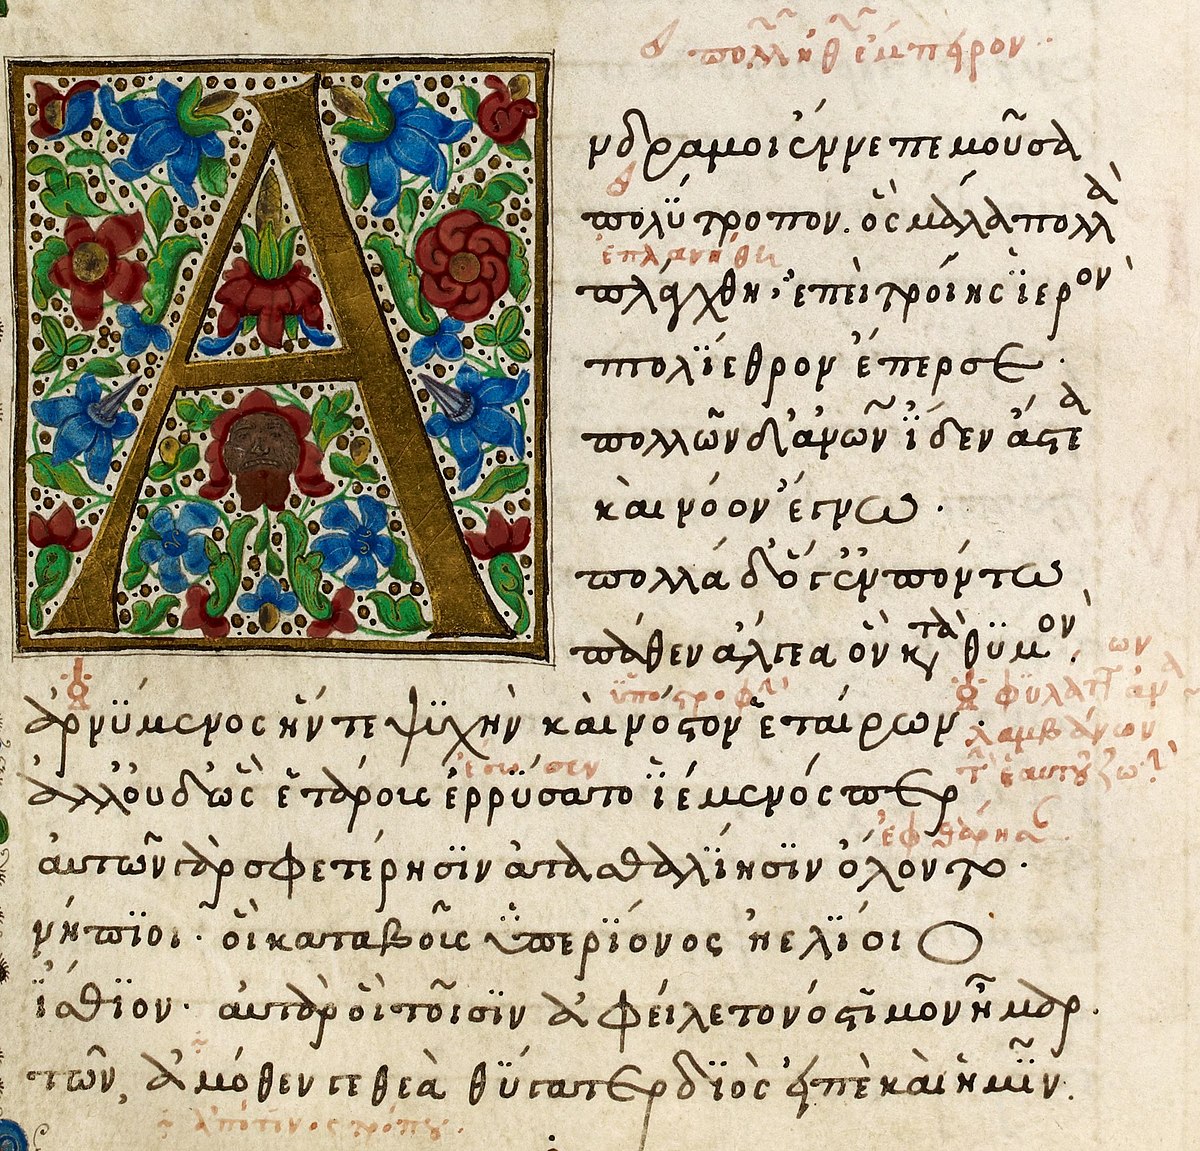 Ἄνδρα μοι ἔννεπε μοῦσα
πολύτροπον. ὃς μάλα πολλὰ
ἐπλανήθη
πλάγχθη, ἐπεὶ τροίης ἱερὸν
πτολίεθρον ἔπερσε.
πολλῶν δ' ἀνθρώπων ἴδεν ἄστεα
καὶ νόον ἔγνω.
πολλὰ δ' ὅγ' ἐν πόντω
πάθεν ἄλγεα ὃν κατὰ θυμόν.
ὑποστροφὴν
ἀρνύμενος ἥν τε ψυχὴν καὶ νόστον ἑταίρων.
λαμβάνων
ἔσωσεν
ἀλλ' οὐδ' ὣς ἑτάροις ἐρρύσατο ἱέμενός περ
ἐφθάρησαν
αὐτῶν γὰρ σφετέρησιν ἀτασθαλίησιν ὄλοντο.
νήπιοι. οἳ κατὰ βοῦς ὑπερίονος ἠελίοιο
ἤσθιον. αὐτὰρ ὃ τοῖσιν ἀφείλετο νόστιμον ἦμαρ.
τῶν, ἁμόθεν γε θεὰ θύγατερ διὸς εἰπὲ καὶ ἡμῖν.
ἀπό τινος τρόπου.